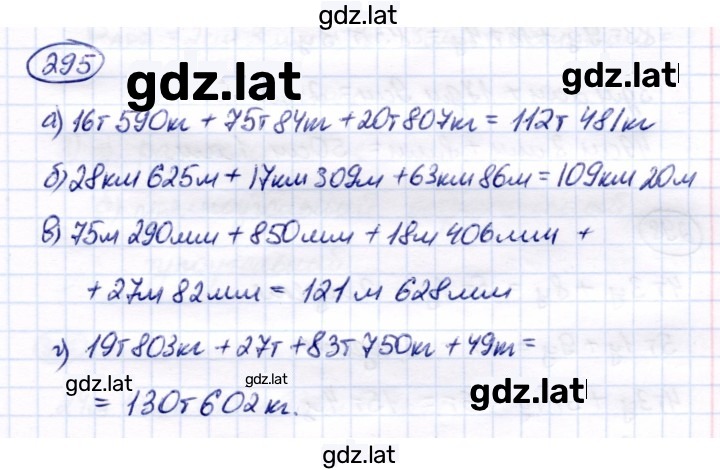 gdz.lat
295
gdz.lat gdz.lat
а) 16т 590кг + 75т 84т + 20т 807кг = 112т 481кг
б) 28км 625м + 17км 309м + 63км 86м = 109км 20м
в) 75м 290мм + 850мм + 18м 406мм +
+ 27м 82мм = 121м 628мм
г) 19т 803кг + 27т + 83т 750кг + 49т =
gdz.lat gdz.lat gdz.lat
= 130т 602кг.
gdz.lat